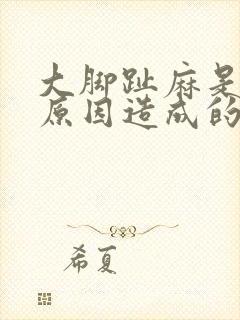 大脚趾麻是
原因造成的
希夏